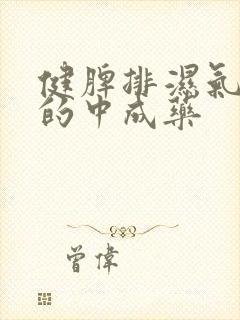 健脾排濕氣
的中成藥
曾偉